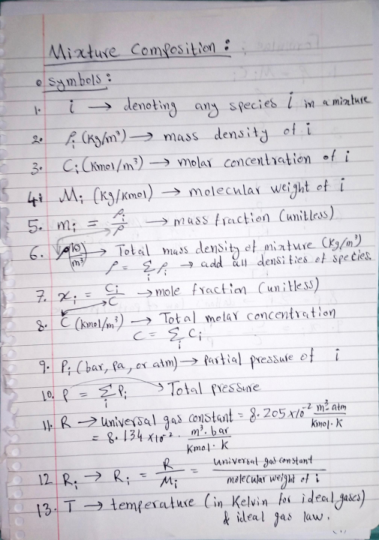 Mixture Composition:
• Symbols:
1. i → denoting any species i in a mixture
2. ρᵢ (Kg/m³) → mass density of i
3. Cᵢ (Kmol/m³) → molar concentration of i
4. Mᵢ (Kg/Kmol) → molecular weight of i
5. mᵢ = ρᵢ/ρ → mass fraction (unitless)
6. → Total mass density of mixture (Kg/m³)
ρ = Σᵢ ρᵢ → add all densities of species.
7. xᵢ = Cᵢ/C → mole fraction (unitless)
8. C (Kmol/m³) → Total molar concentration
C = Σᵢ Cᵢ
9. Pᵢ (bar, Pa, or atm) → Partial pressure of i
10. P = Σᵢ Pᵢ → Total pressure
11. R → universal gas constant = 8.205 x 10⁻² m³ atm/Kmol·K
= 8.134 x 10⁻² · m³·bar/Kmol·K
12 Rᵢ → Rᵢ = R/Mᵢ = universal gas constant/molecular weight of i
13. T → temperature (in Kelvin for ideal gases)
& ideal gas law.